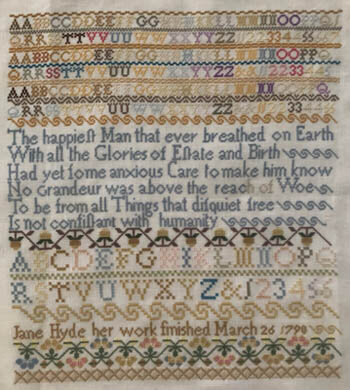 AABBCCDDEE GG HHIIKKLLMMNNOOPPQ
QRRSSTTVVUU WWXXYYZZ 1223344
AABBCCDDEE GG HHIIKKLLMMNNOOPPQ
QRRSSTTUU WWXXYYZZ 112233
AABBCCDDEE
UU WW ZZ 33
The happieſt Man that ever breathed on Earth
With all the Glories of Eſtate and Birth
Had yet ſome anxious Care to make him know
No Grandeur was above the reach of Woe
To be from all Things that diſquiet free
Is not conſiſtant with humanity
ABCDEFGHIKLMNOPQ
RSTVUWXYZ&123456
Jane Hyde her work finished March 26 1790